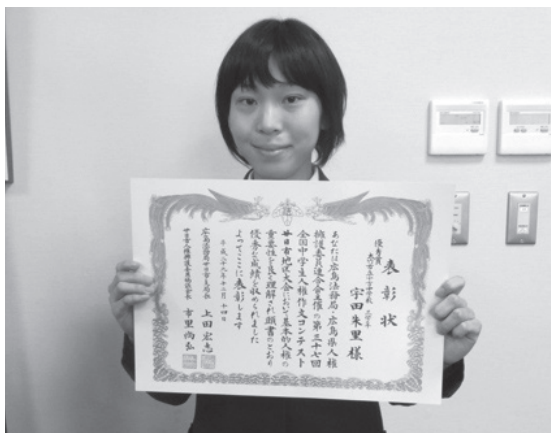 表彰状
優秀賞
宇田朱里 様
あなたは広島法務局・広島県人権
擁護委員連合会主催の第三十七回
全国中学生人権作文コンテスト
廿日市地区大会において基本的人権の
重要性を良く理解され頭書のとおり
優秀な成績を収められました
よってここに表彰します
広島法務局廿日市支局長 上田宏
廿日市人権擁護委員協議会長 市里尚弘